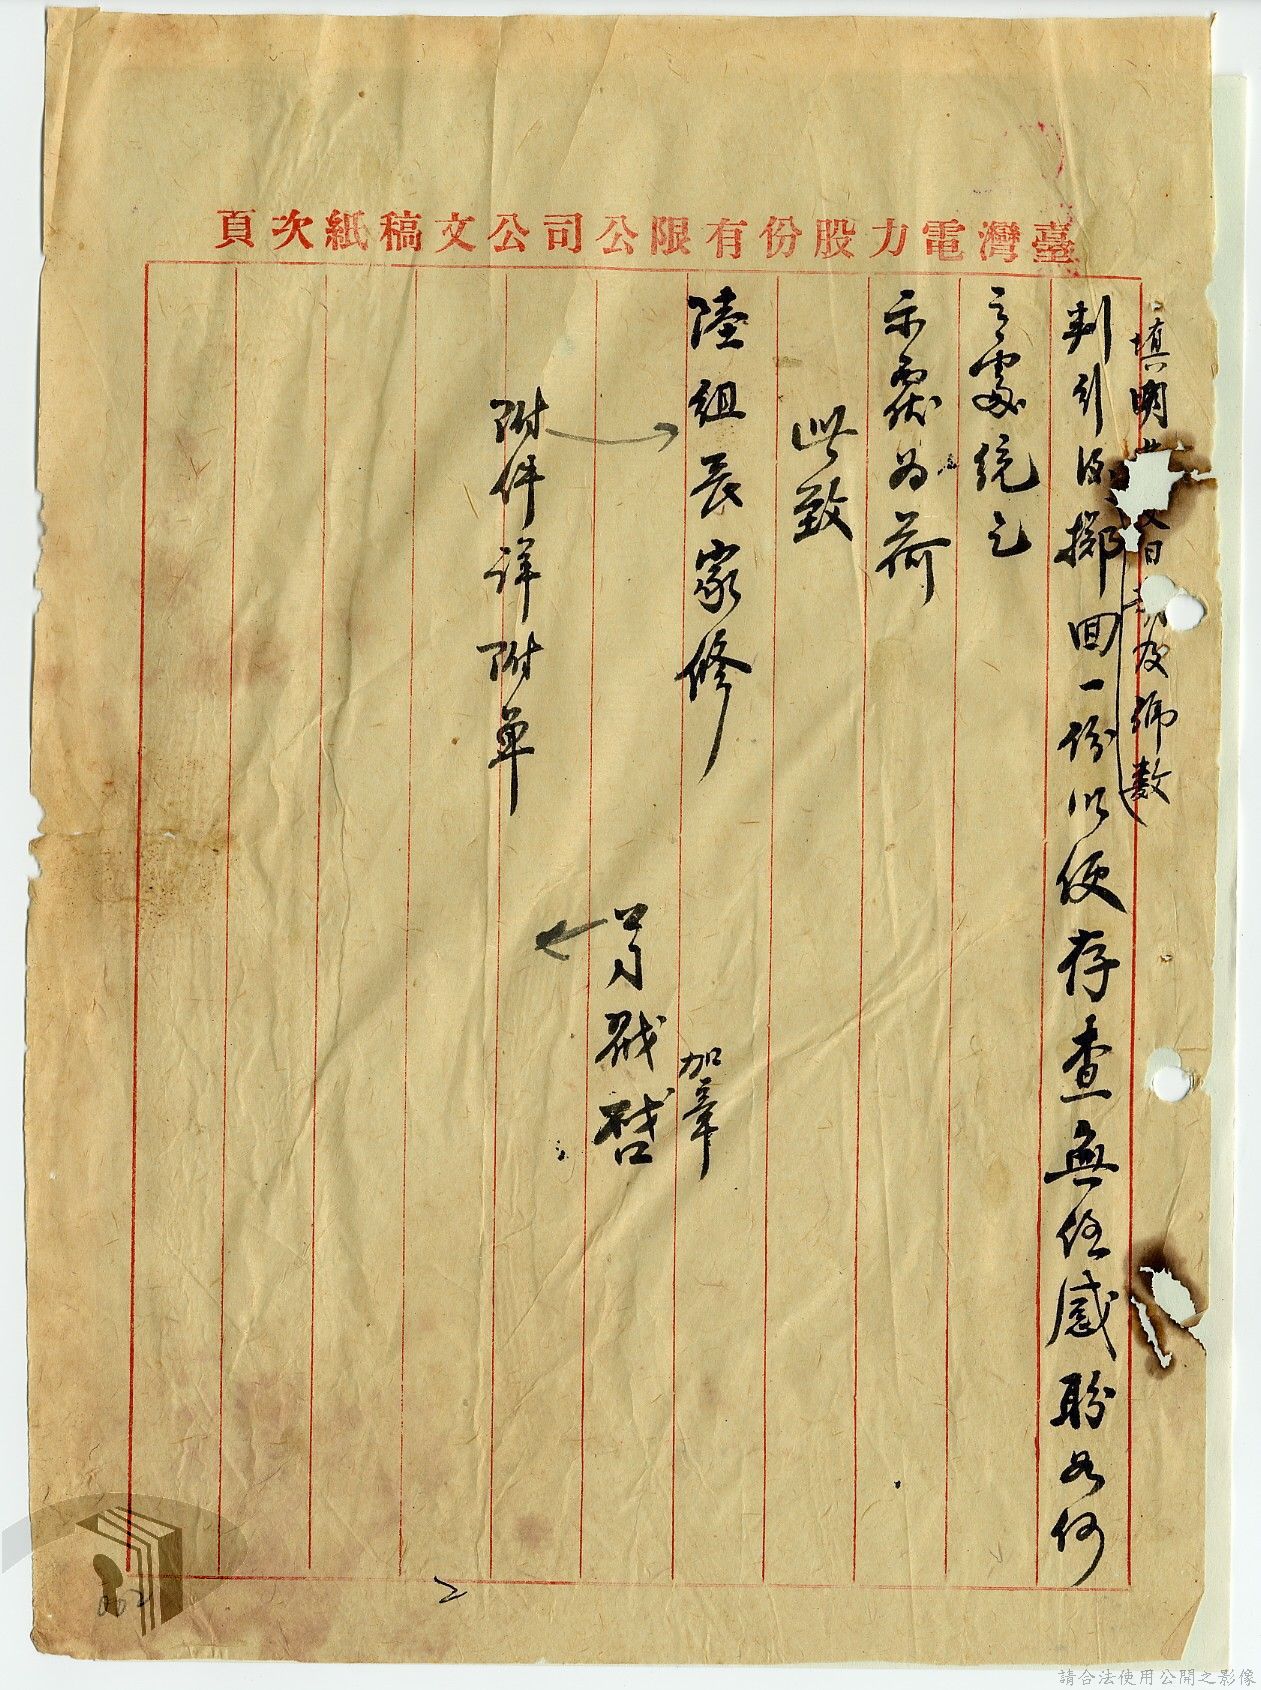 臺灣電力股份有限公司公文稿紙次頁
填明 及號數
判行後擲回一份以便存查無任感盼如何
之處統乞
示覆為荷
此致
陸組長家修
加章
弟 戳啓
附件詳附單
2
002
請合法使用公開之影像